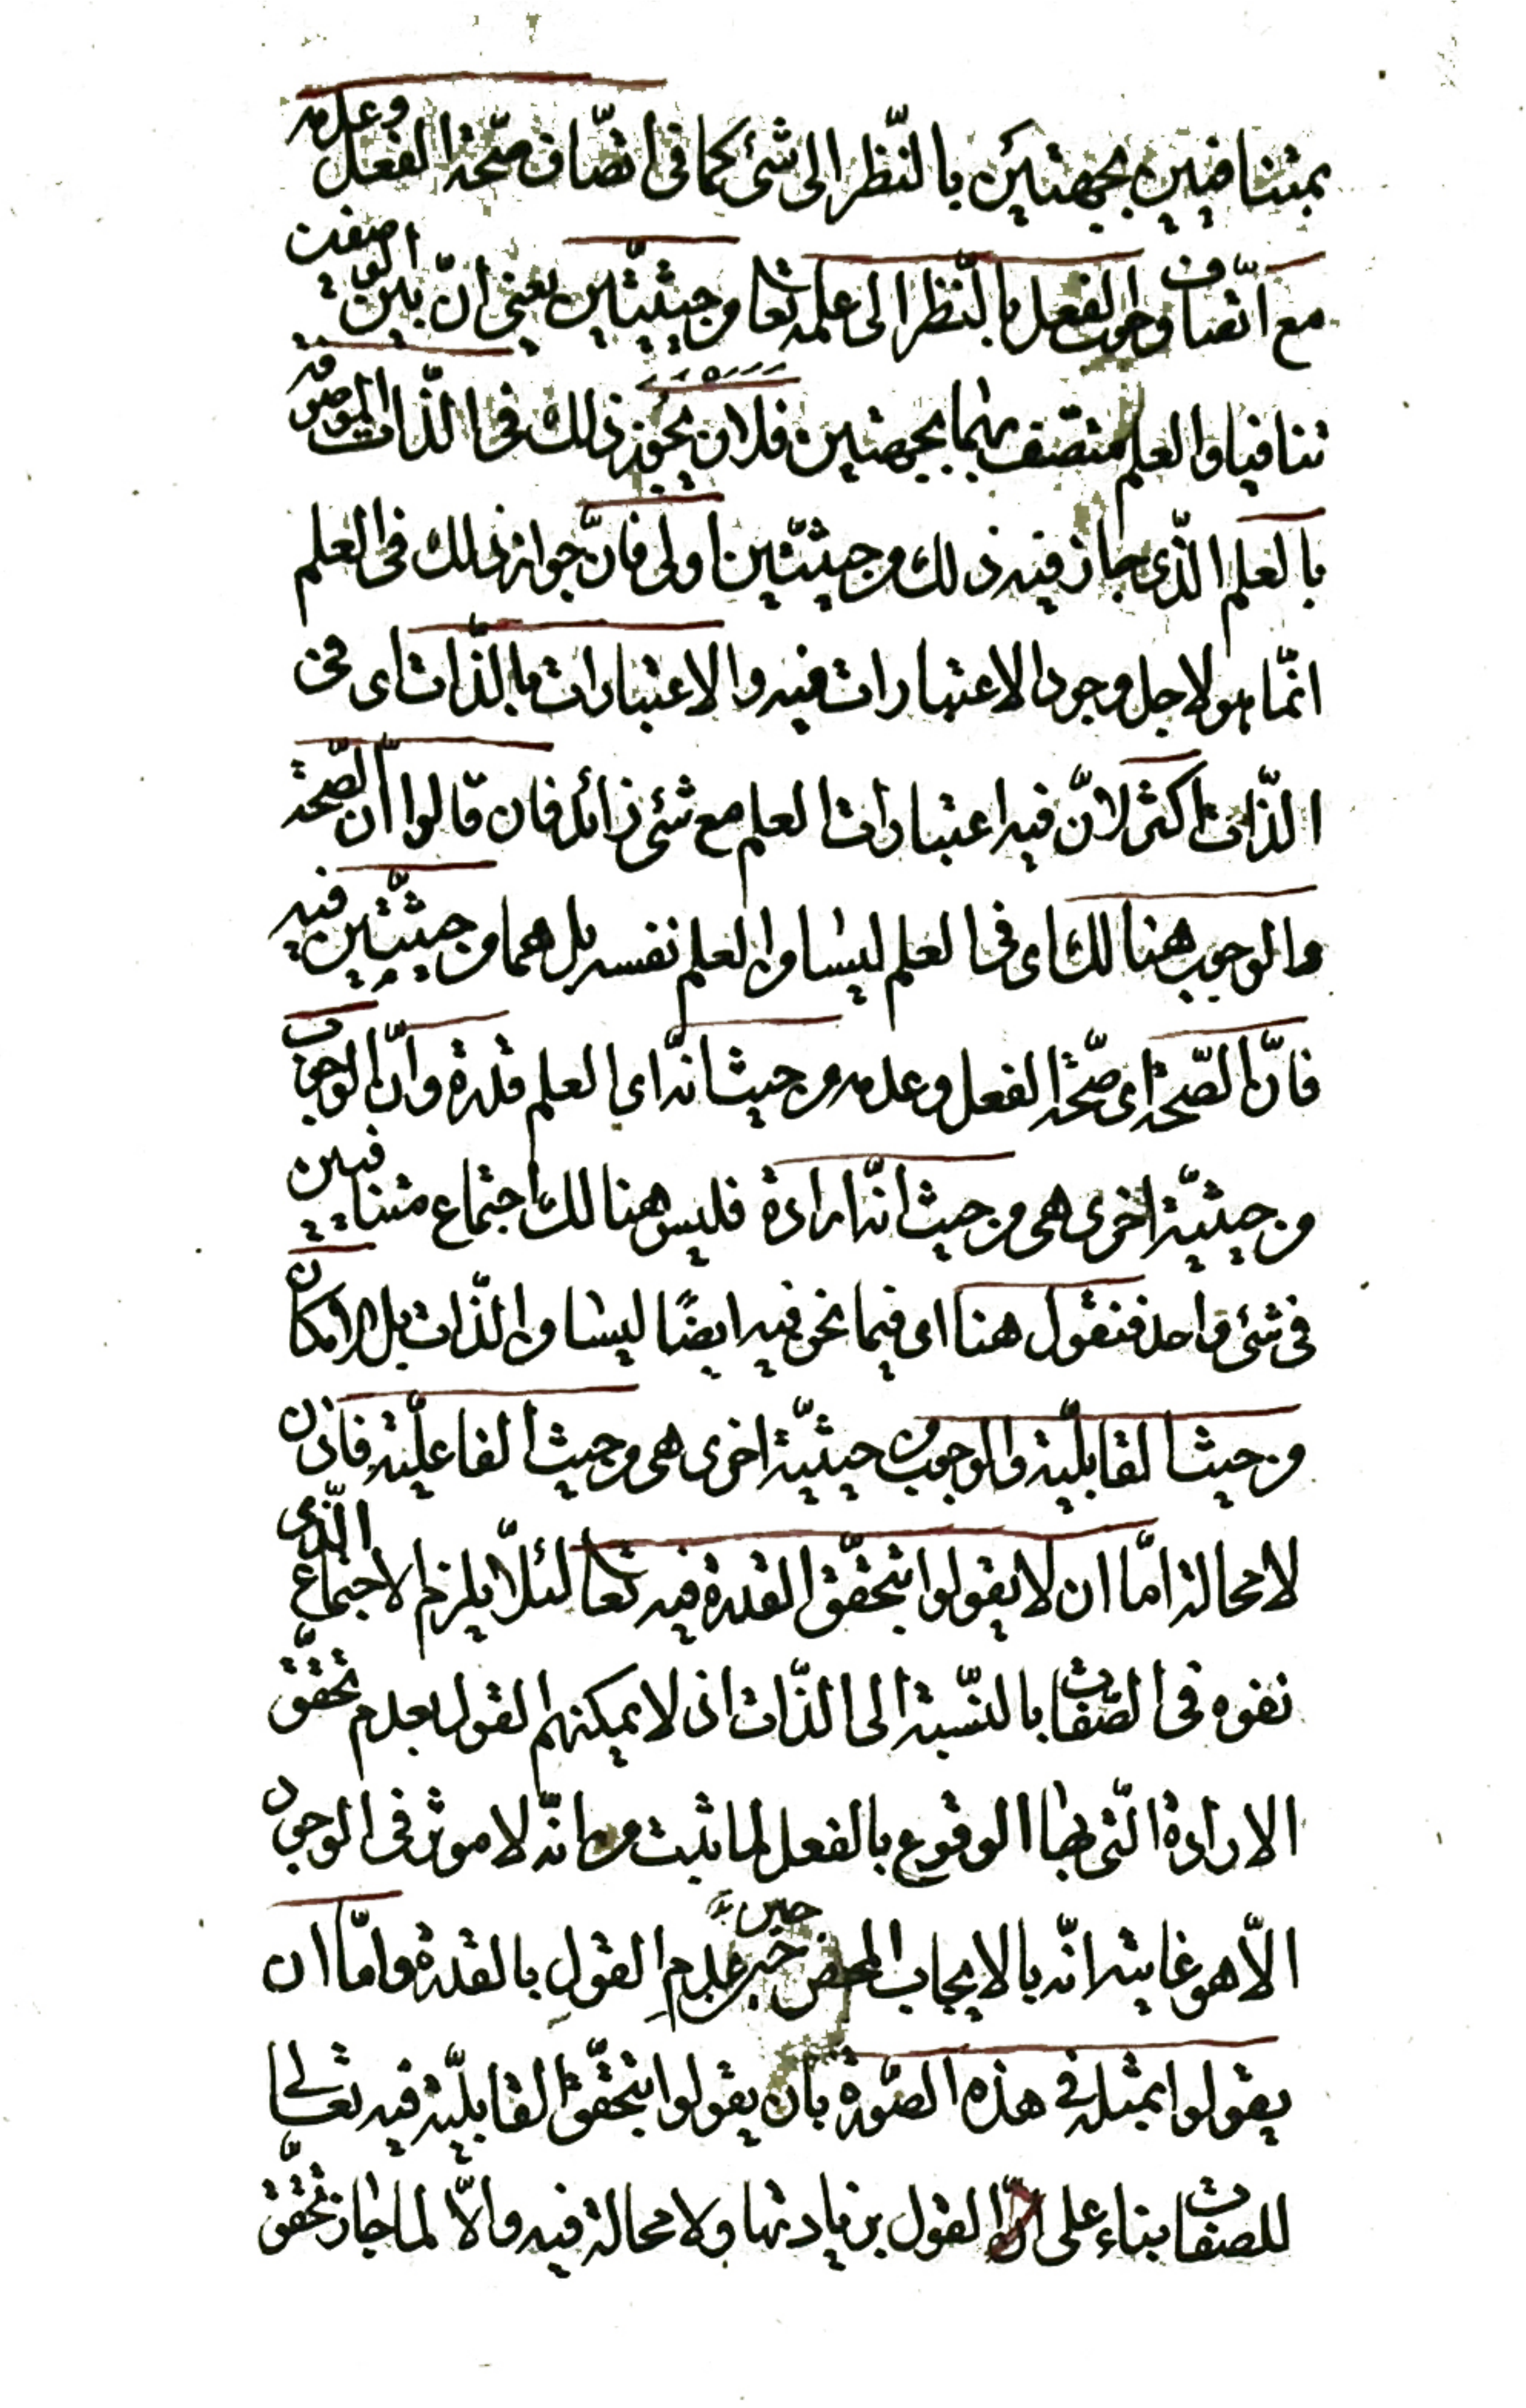 بمتنافيين بجهتين بالنّظر الى شئ كما فى اتّصاف صحّة الفعل وعدمه
مع اتّصاف وجوب الفعل بالنّظر الى علمه تعا من حيثيّتين يعنى انّ بين الوصفين
تنافيا والعلم متّصف بهما بجهتين فلان يجوز ذلك فى الذّات الموصوفة
بالعلم الّذى جاز فيه ذلك من حيثيّتين اولى فانّ جواز ذلك فى العلم
انّما هو لاجل وجود الاعتبارات فيه والاعتبارات بالذّات اى فى
الذّات اكثر لانّ فيه اعتبارات العلم مع شئ زائد فان قالوا انّ الصّحّة
والوجوب هنالك اى فى العلم ليسا من العلم نفسه بل هما من حيثيّتين فيه
فانّ الصّحّة اى صحّة الفعل وعدمه من حيث انّه اى العلم قدرة وانّ الوجوب
من حيثيّة اخرى هى من حيث انّه ارادة فليس هنالك اجتماع متنافيين
فى شئ واحد فنقول هنا اى فيما نحن فيه ايضًا ليسا من الذّات بل الامكان
من حيث القابليّة والوجوب من حيثيّة اخرى هى من حيث الفاعليّة فاذن
لا محالة امّا ان لا يقولوا بتحقّق القدرة فيه تعا لئلّا يلزم الاجتماع الّذى
نفوه فى الصّفات بالنّسبة الى الذّات اذ لا يمكنهم القول بعدم تحقّق
الارادة الّتى بها الوقوع بالفعل لما ثبت من انّه لا موثر فى الوجود
الّا هو غايته انّه بالايجاب المحض حين عدم القولِ بالقدرة وامّا ان
يقولوا بمثله فى هذه الصّورة بان يقولوا بتحقّق القابليّة فيه تعالى
للصفات بناء على القول بزيادتها ولا محالة فيه والّا لما جاز تحقّق